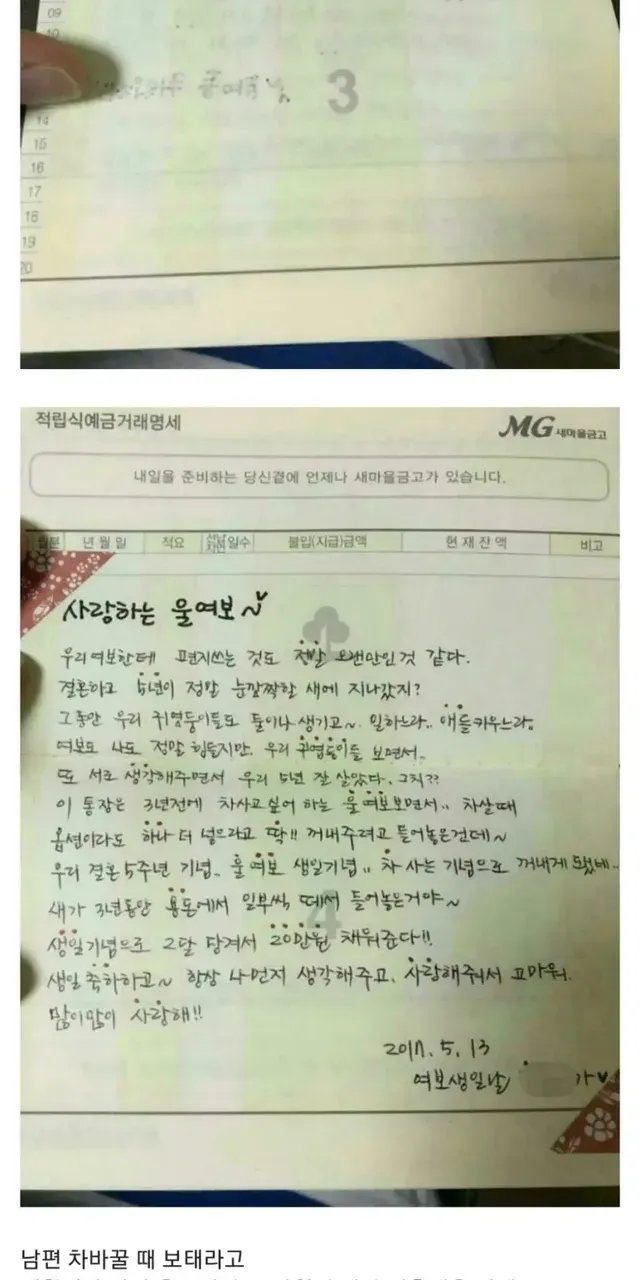 09
10
3
14
15
16
17
18
19
20
적립식예금거래명세
MG 새마을금고
내일을 준비하는 당신곁에 언제나 새마을금고가 있습니다.
년월일 적요 일수 불입(지급)금액 현재잔액 비고
사랑하는 울여보~♥
우리여보한테 편지쓰는 것도 정말 오랜만인것 같다.
결혼하고 5년이 정말 눈깜짝할 새에 지나갔지?
그동안 우리 귀염둥이들도 둘이나 생기고~ 일하느라.. 애들키우느라,
여보도 나도 정말 힘들지만, 우리 귀염둥이들 보면서..
또 서로 생각해주면서 우리 5년 잘 살았다. 그치??
이 통장은 3년전에 차사고싶어 하는 울여보보면서.. 차살때
옵션이라도 하나 더 넣으라고 딱!! 꺼내주려고 들어놓은건데~
우리 결혼 5주년 기념.. 울여보 생일기념.. 차 사는 기념으로 꺼내게 됐네..
새가 3년동안 용돈에서 일부씩 떼서 들어놓은거야~
4
생일기념으로 2달 당겨서 20만원 채워준다!!
생일 축하하고~ 항상 나먼저 생각해주고, 사랑해줘서 고마워.
많이많이 사랑해!!
2017. 5. 13
여보생일날 가♥
남편 차바꿀 때 보태라고